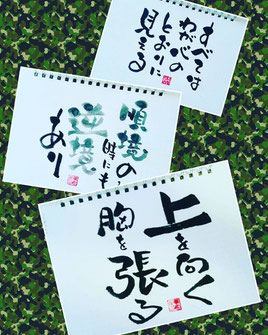 すべては
わが心の
とおりに
見える
順境の
時にも
逆境
あり
上を向く
胸を
張る